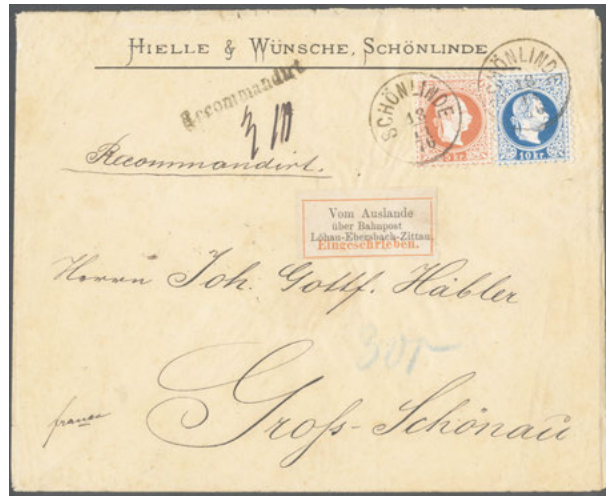 HIELLE & WÜNSCHE, SCHÖNLINDE
Recommandirt
SCHÖNLINDE
18
SCHÖNLINDE
18
5 Kr.
10 Kr.
Recommandirt.
Vom Auslande
über Bahnpost
Löbau-Ebersbach-Zittau.
Eingeschrieben.
Herrn Joh. Gottf. Häbler
franco
Groß-Schönau